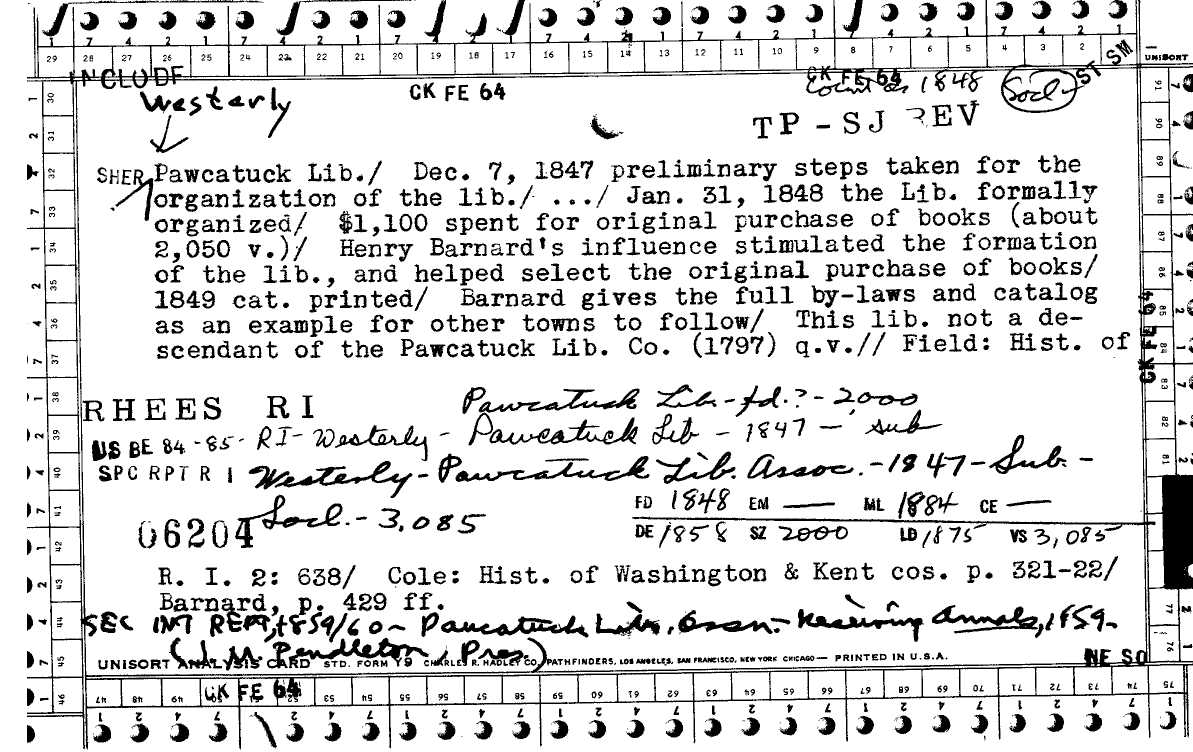 INCLUDE
Westerly
CK FE 64
CK FE 64
Count as 1848
Socl
ST SM
UNISORT
TP - SJ REV
SHER Pawcatuck Lib./ Dec. 7, 1847 preliminary steps taken for the
organization of the lib./ .../ Jan. 31, 1848 the Lib. formally
organized/ $1,100 spent for original purchase of books (about
2,050 v.)/ Henry Barnard's influence stimulated the formation
of the lib., and helped select the original purchase of books/
1849 cat. printed/ Barnard gives the full by-laws and catalog
as an example for other towns to follow/ This lib. not a de-
scendant of the Pawcatuck Lib. Co. (1797) q.v.// Field: Hist. of
CK FE 64
RHEES RI Pawcatuck Lib. - fd. ? - 2,000
US BE 84-85 - RI - Westerly - Pawcatuck Lib - 1847 - sub
SPC RPT R I Westerly - Pawcatuck Lib. Assoc. - 1847 - Sub. -
Socl. - 3,085
FD 1848 EM — ML 1884 CE —
06204
DE 1858 SZ 2000 LD 1875 VS 3,085
R. I. 2: 638/ Cole: Hist. of Washington & Kent cos. p. 321-22/
Barnard, p. 429 ff.
SEC INT REPT, 1859/60 - Pawcatuck Libr. Assn. - Receiving Annals, 1859-
(J. M. Pendleton, Pres.)
UNISORT ANALYSIS CARD STD. FORM Y9 CHARLES R. HADLEY CO., PATHFINDERS, LOS ANGELES, SAN FRANCISCO, NEW YORK CHICAGO — PRINTED IN U.S.A.
NE SO
CK FE 64